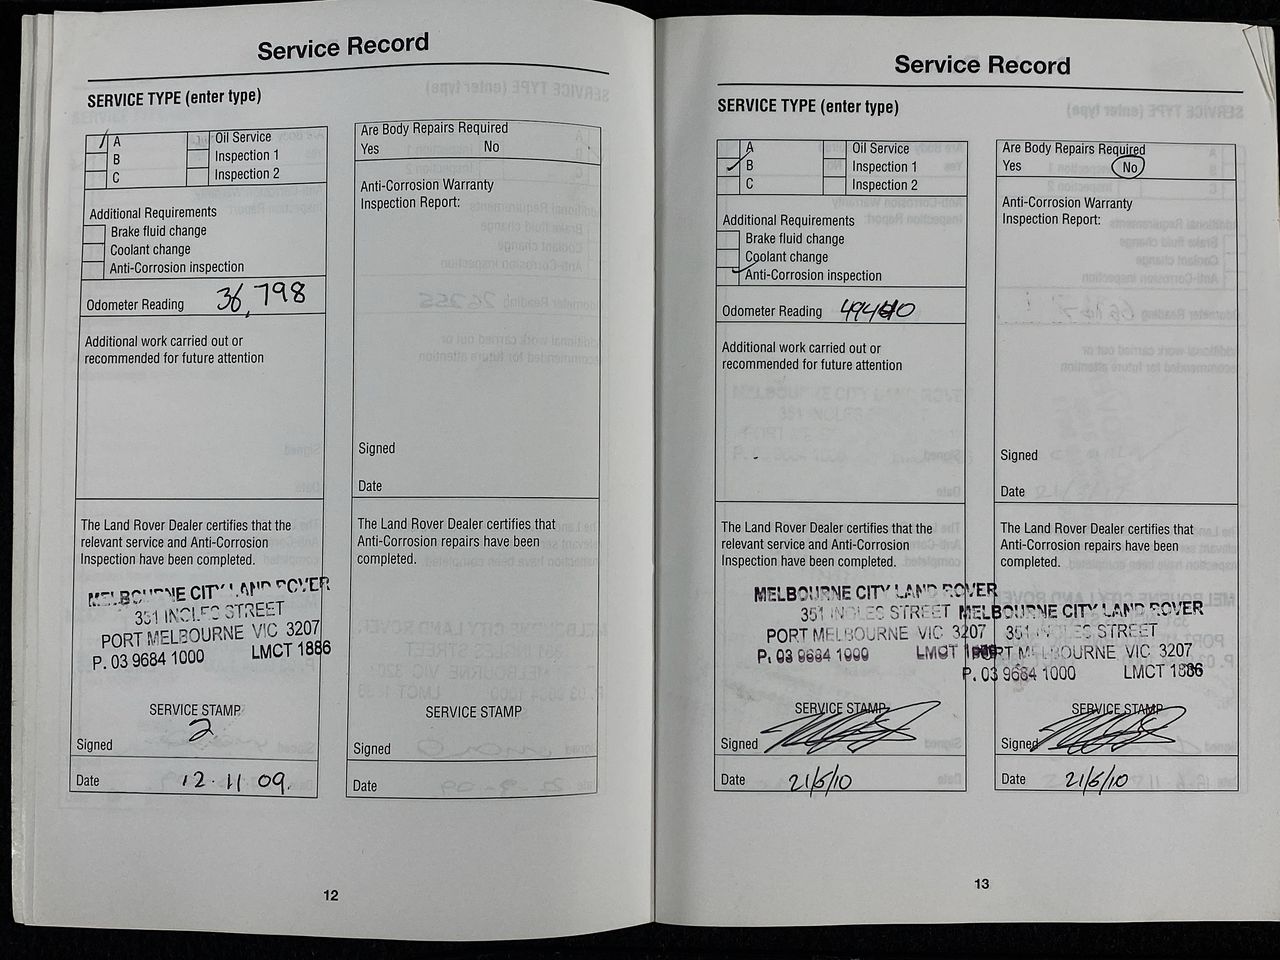 Service Record
SERVICE TYPE (enter type)
A Oil Service
B Inspection 1
C Inspection 2
Additional Requirements
Brake fluid change
Coolant change
Anti-Corrosion inspection
Odometer Reading 36,798
Additional work carried out or
recommended for future attention
The Land Rover Dealer certifies that the
relevant service and Anti-Corrosion
Inspection have been completed.
MELBOURNE CITY LAND ROVER
351 INGLES STREET
PORT MELBOURNE VIC 3207
P. 03 9684 1000 LMCT 1886
SERVICE STAMP
2
Signed
Date 12.11.09.
Are Body Repairs Required
Yes No
Anti-Corrosion Warranty
Inspection Report:
Signed
Date
The Land Rover Dealer certifies that
Anti-Corrosion repairs have been
completed.
SERVICE STAMP
Signed
Date
12
Service Record
SERVICE TYPE (enter type)
A Oil Service
B Inspection 1
C Inspection 2
Additional Requirements
Brake fluid change
Coolant change
Anti-Corrosion inspection
Odometer Reading
Additional work carried out or
recommended for future attention
The Land Rover Dealer certifies that the
relevant service and Anti-Corrosion
Inspection have been completed.
MELBOURNE CITY LAND ROVER
351 INGLES STREET
PORT MELBOURNE VIC 3207
P. 03 9684 1000 LMCT
SERVICE STAMP
Signed
Date 21/6/10
Are Body Repairs Required
Yes No
Anti-Corrosion Warranty
Inspection Report:
Signed
Date
The Land Rover Dealer certifies that
Anti-Corrosion repairs have been
completed.
MELBOURNE CITY LAND ROVER
351 INGLES STREET
PORT MELBOURNE VIC 3207
P. 03 9684 1000 LMCT 1886
SERVICE STAMP
Signed
Date 21/6/10
13